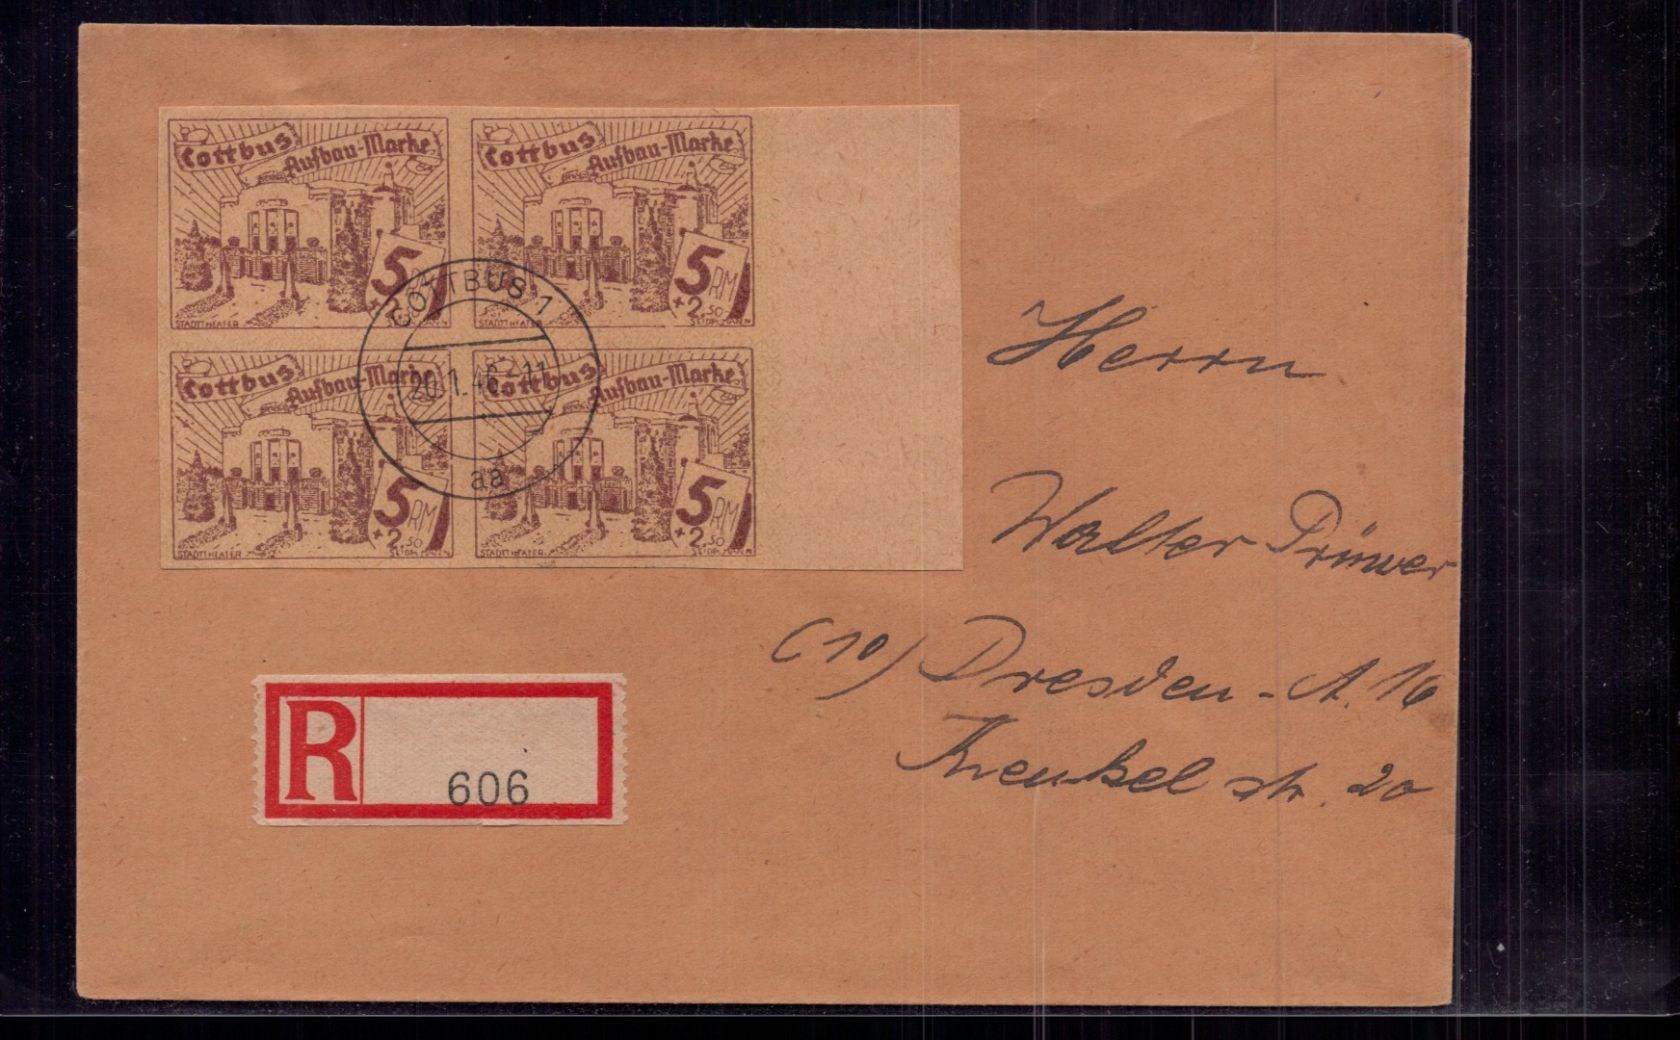 Cottbus Aufbau-Marke
5 RM
+2.50
STADTTHEATER
Cottbus Aufbau-Marke
5 RM
+2.50
STADTTHEATER
Cottbus Aufbau-Marke
5 RM
+2.50
STADTTHEATER
Cottbus Aufbau-Marke
5 RM
+2.50
STADTTHEATER
COTTBUS 1
20.1.46-11
aa
Herrn
Walter Prüwer
(10) Dresden-A. 16
str. 20
R
606